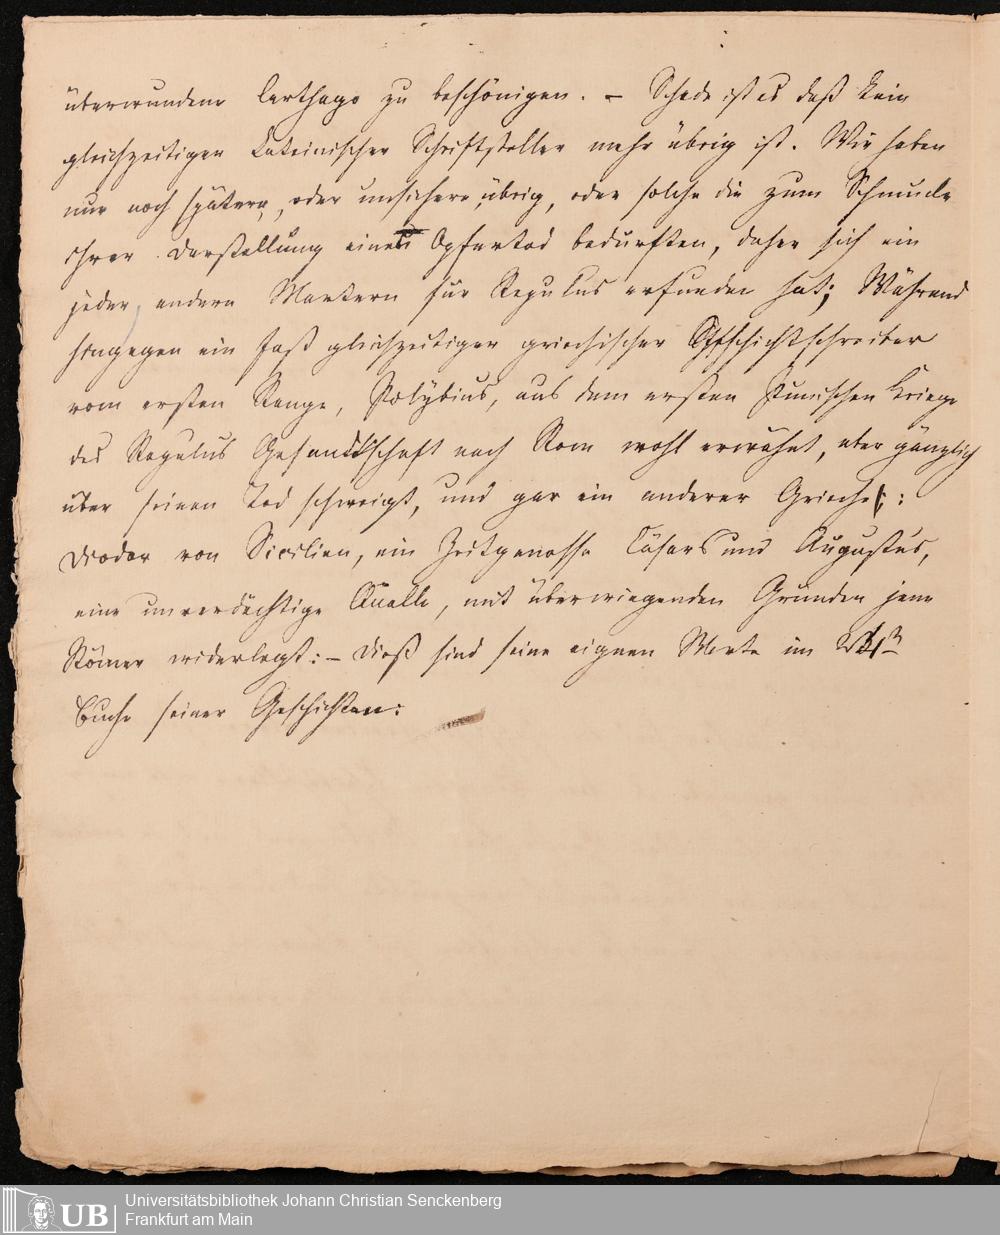 überwundene Carthago zu beschönigen. – Schade ist es daß kein
gleichzeitiger Lateinischer Schriftsteller mehr übrig ist. Wir haben
nur noch spätere, oder unsichere, übrig, oder solche die zum Schmucke
ihrer Darstellung eines Opfertod bedurften, daher sich ein
jeder, andere Martern für Regulus erfunden hat; Während
hingegen ein fast gleichzeitiger griechischer Geschichtschreiber
vom ersten Range, Polybius, aus dem ersten Punischen Kriege
des Regulus Gesandtschaft nach Rom wohl erwähnt, aber gänzlich
über seinen Tod schweigt, und gar ein anderer Grieche:
Diodor von Sicilien, ein Zeitgenosse Cäsars und Augustus,
eine unverdächtige Quelle, mit überwiegenden Gründen jene
Römer widerlegt: – Dieß sind seine eignen Worte im
Buche seiner Geschichten:
Universitätsbibliothek Johann Christian Senckenberg
Frankfurt am Main
UB